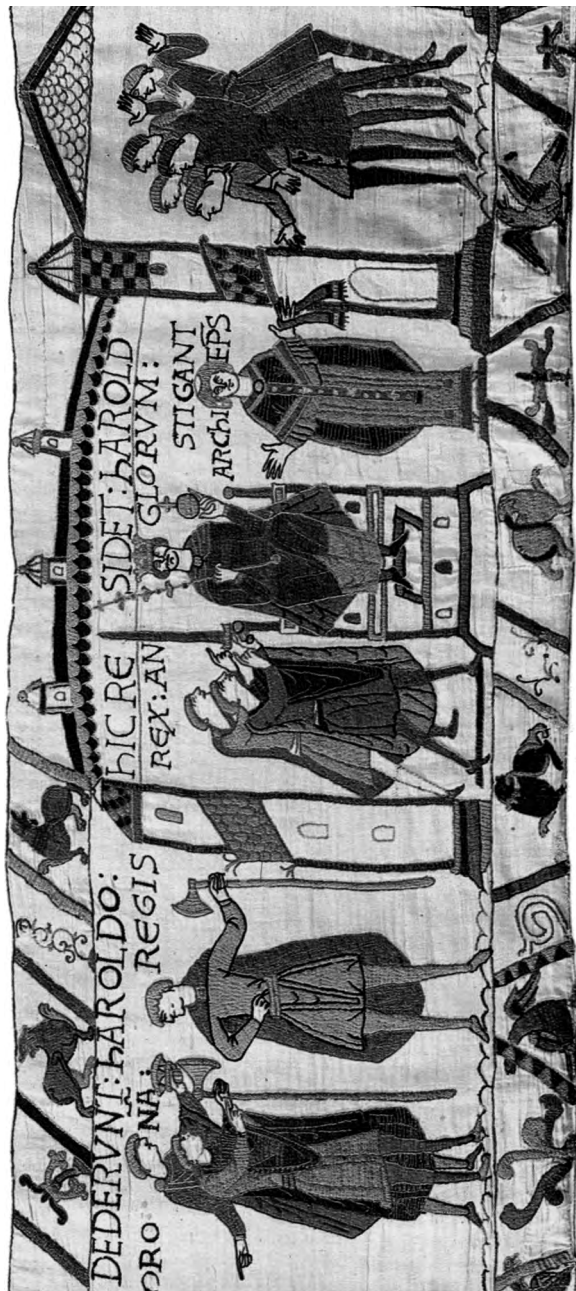 DEDERVNT: hAROLDO:
ORO NĀ: REGIS
hIC RE SIDET: hAROLD
REX: AN GLORVM:
STIGANT
ARChI EP̄S